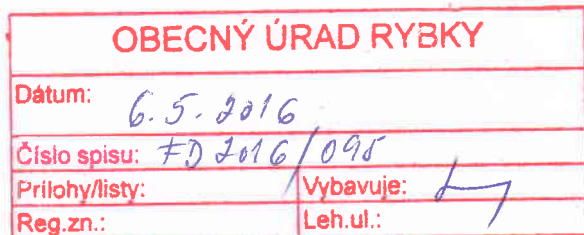 OBECNÝ ÚRAD RYBKY
Dátum: 6.5.2016
Číslo spisu: FD 2016/095
Prílohy/listy: Vybavuje:
Reg.zn.: Leh.ul.: